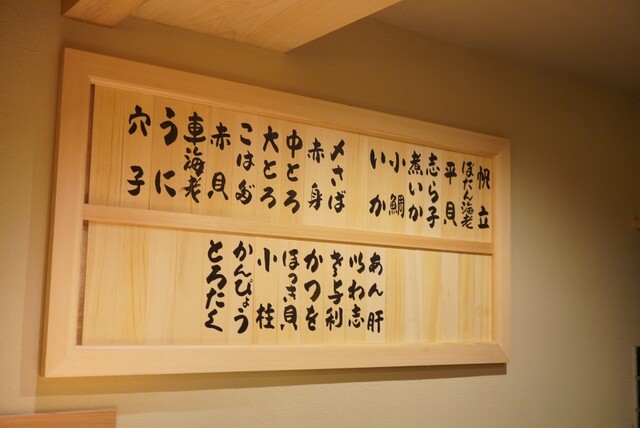 帆立
ぼたん海老
平貝
志ら子
煮いか
小鯛
いか
〆さば
赤身
中とろ
大とろ
こはだ
赤貝
車海老
うに
穴子
あん肝
以わ志
さ与利
かつを
ほっき貝
小柱
かんぴょう
とろたく